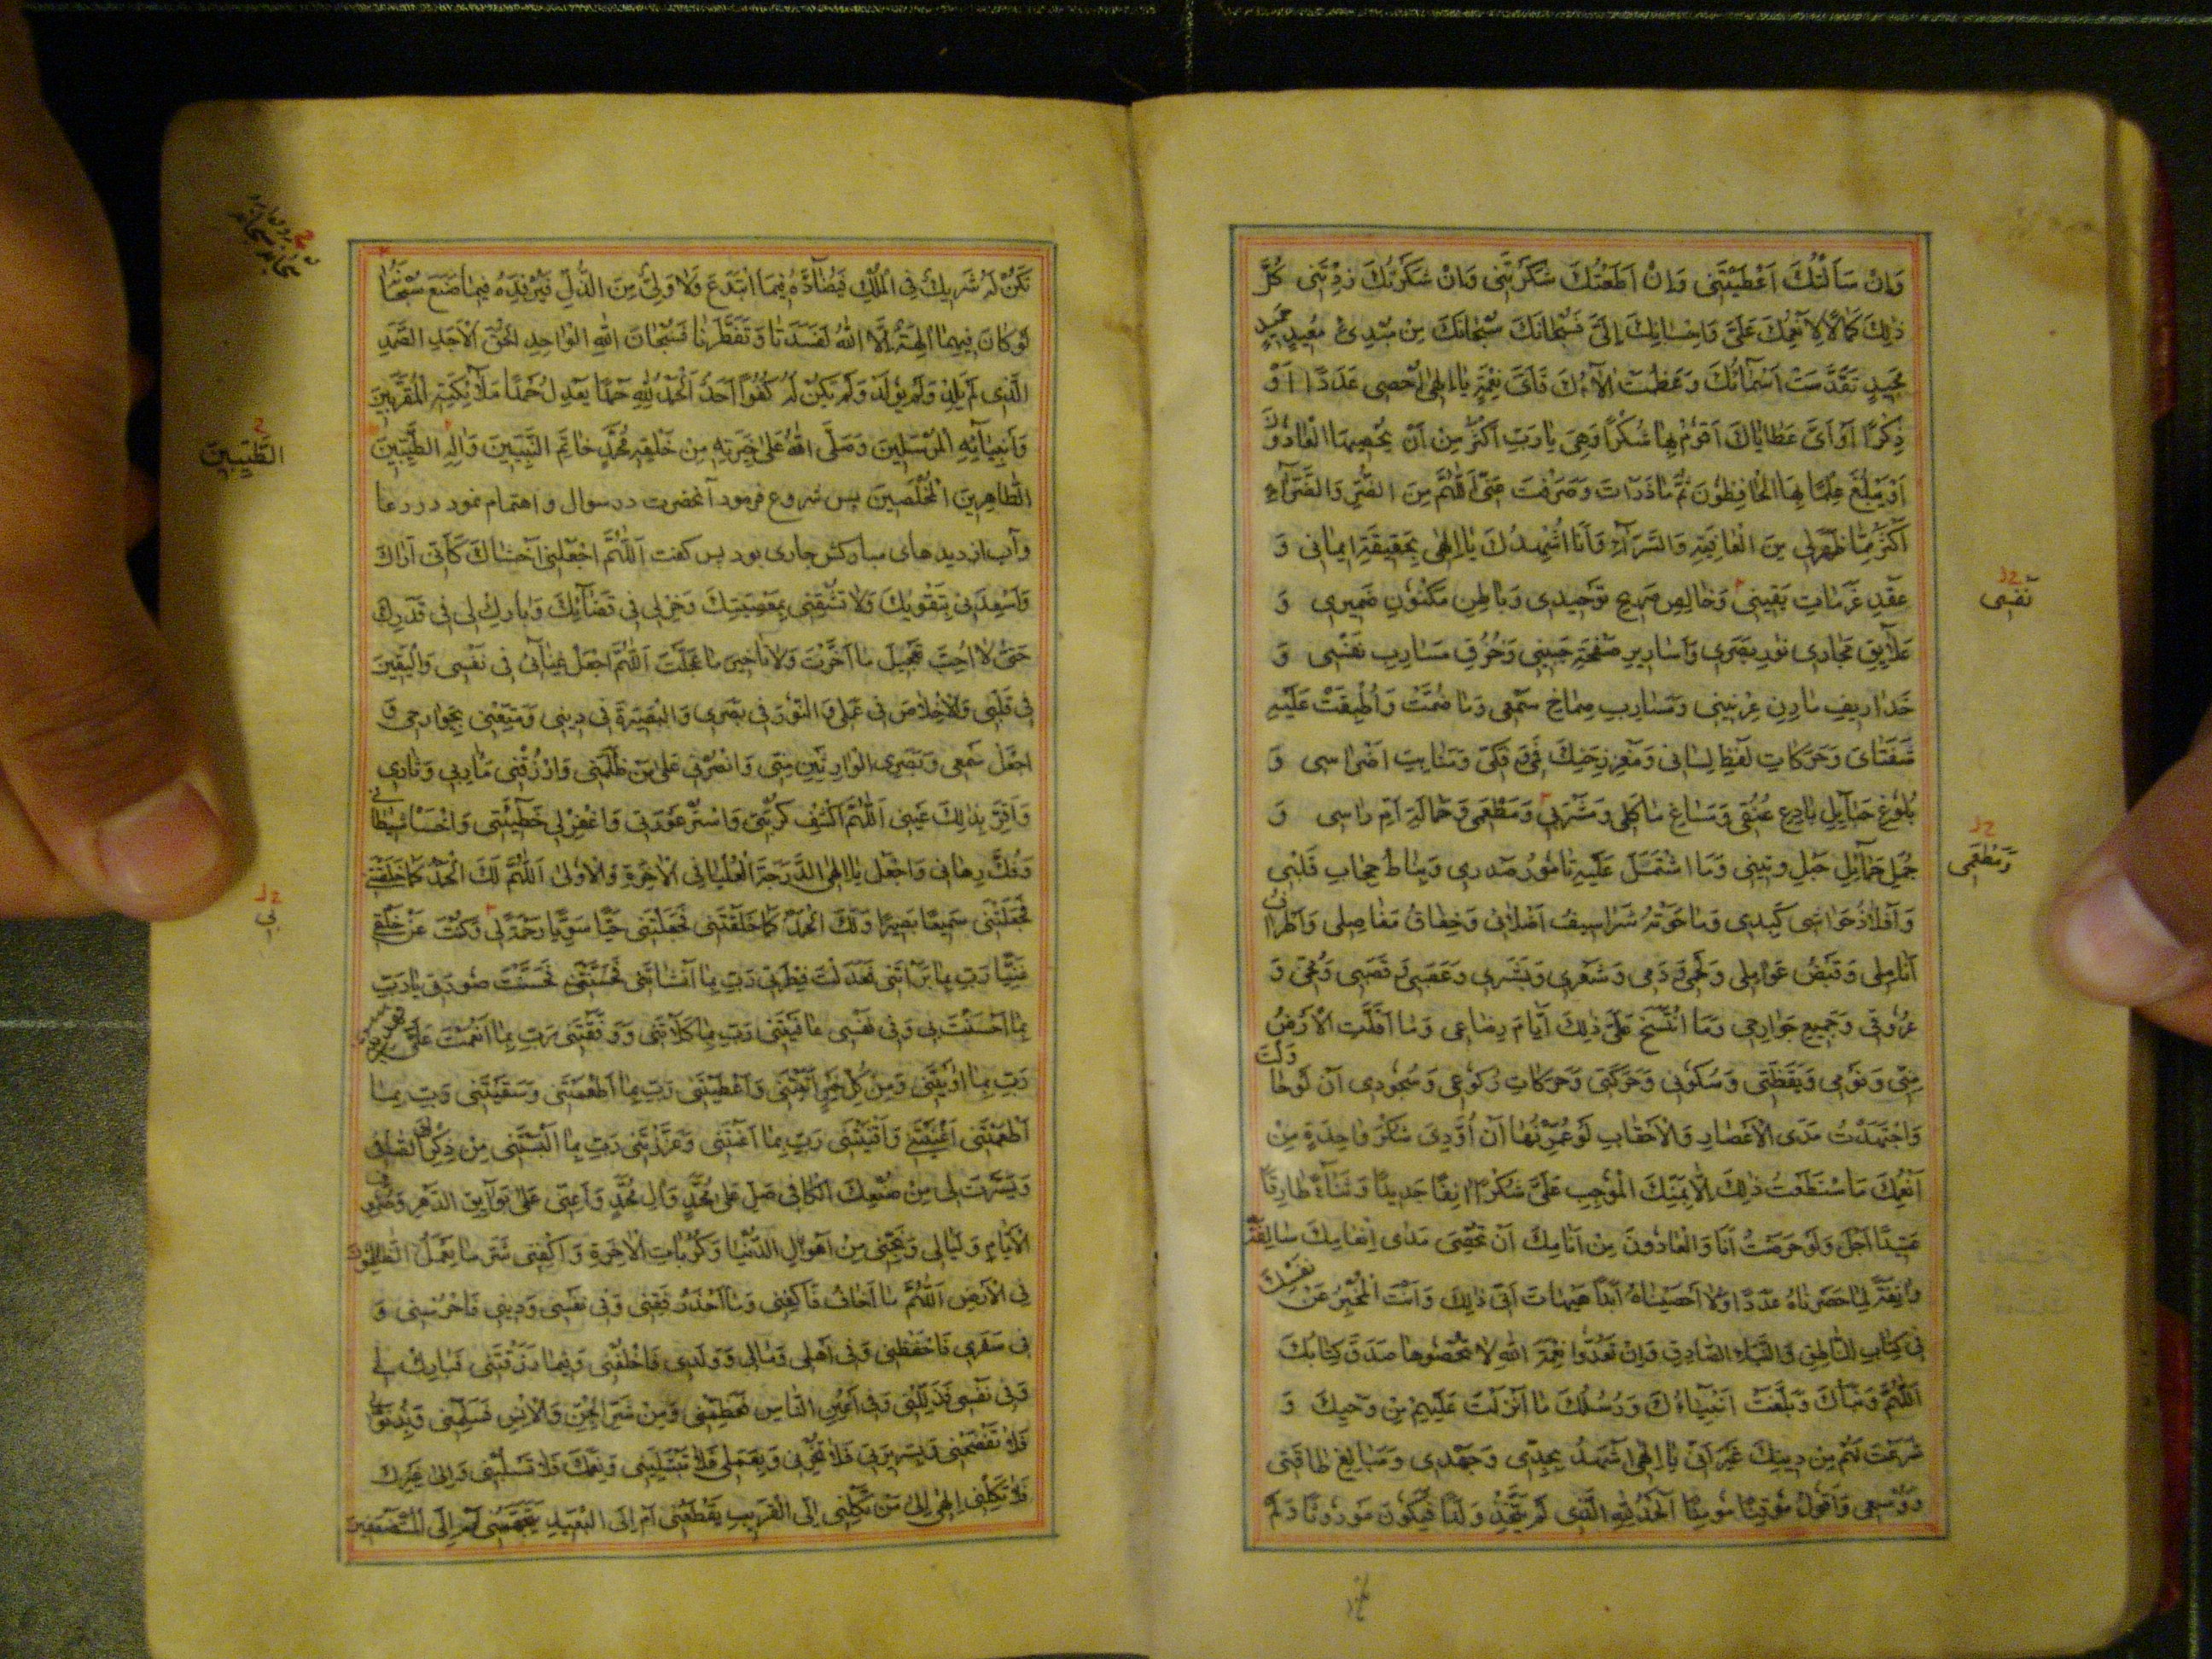 وَاِنْ سَاَلْتُكَ اَعْطَيْتَنى وَاِنْ اَطَعْتُكَ شَكَرْتَنى وَاِنْ شَكَرْتُكَ زِدْتَنى كُلَّ
ذٰلِكَ كَمٰالًا لِاَنْعُمِكَ عَلَىَّ وَاِحْسٰانِكَ اِلَىَّ فَسُبْحٰانَكَ سُبْحٰانَكَ مِنْ مُبْدِئٍ مُعيدٍ حَميدٍ
مَجيدٍ تَقَدَّسَتْ اَسْمٰاؤُكَ وَعَظُمَتْ اٰلٰاؤُكَ فَاَىَّ نِعَمِكَ يٰا اِلٰهى اُحْصى عَدَدًا اَوْ
ذِكْرًا اَوْ اَىَّ عَطٰايٰاكَ اَقُومُ بِهٰا شُكْرًا وَهِىَ يٰا رَبِّ اَكْثَرُ مِنْ اَنْ يُحْصِيَهَا الْعٰادُّونَ
اَوْ يَبْلُغَ عِلْمًا بِهَا الْحٰافِظُونَ ثُمَّ مٰا ذَرَاْتَ وَصَرَفْتَ عَنّى اَللّٰهُمَّ مِنَ الضُّرِّ وَالضَّرّٰاءِ
اَكْثَرُ مِمّٰا ظَهَرَ لى مِنَ الْعٰافِيَةِ وَالسَّرّٰاءِ وَاَنَا اُشْهِدُكَ يٰا اِلٰهى بِحَقيقَةِ ايمٰانى وَ
عَقْدِ عَزَمٰاتِ يَقينى وَخٰالِصِ صَريحِ تَوْحيدى وَبٰاطِنِ مَكْنُونِ ضَميرى وَ
عَلٰائِقِ مَجٰارى نُورِ بَصَرى وَاَسٰاريرِ صَفْحَةِ جَبينى وَخُرْقِ مَسٰارِبِ نَفْسى وَ
خَذٰاريفِ مٰارِنِ عِرْنينى وَمَسٰارِبِ صِمٰاخِ سَمْعى وَمٰا ضُمَّتْ وَاُطْبِقَتْ عَلَيْهِ
شَفَتٰاىَ وَحَرَكٰاتِ لَفْظِ لِسٰانى وَمَغْرِزِ حَنَكِ فَمى وَفَكّى وَمَنٰابِتِ اَضْرٰاسى وَ
بُلُوغِ حَبٰائِلِ بٰارِعِ عُنُقى وَمَسٰاغِ مَأْكَلى وَمَشْرَبى وَمَطْعَمى وَحِمٰالَةِ اُمِّ رَاْسى وَ
جُمَلِ حَمٰائِلِ حَبْلِ وَتينى وَمَا اشْتَمَلَ عَلَيْهِ تٰامُورُ صَدْرى وَنِيٰاطُ حِجٰابِ قَلْبى
وَاَفْلٰاذُ حَوٰاشى كَبِدى وَمٰا حَوَتْهُ شَرٰاسيفُ اَضْلٰاعى وَحِقٰاقُ مَفٰاصِلى وَاَطْرٰافُ
اَنٰامِلى وَقَبْضُ عَوٰامِلى وَلَحْمى وَدَمى وَشَعْرى وَبَشَرى وَعَصَبى وَقَصَبى وَمُخّى وَ
عُرُوقى وَجَميعُ جَوٰارِحى وَمَا انْتَسَجَ عَلٰى ذٰلِكَ اَيّٰامَ رِضٰاعى وَمٰا اَقَلَّتِ الْاَرْضُ
مِنّى وَنَوْمى وَيَقْظَتى وَسُكُونى وَحَرَكَتى وَحَرَكٰاتِ رُكُوعى وَسُجُودى اَنْ لَوْ حٰاوَلْتُ
وَاجْتَهَدْتُ مَدَى الْاَعْصٰارِ وَالْاَحْقٰابِ لَوْ عُمِّرْتُهٰا اَنْ اُؤَدِّىَ شُكْرَ وٰاحِدَةٍ مِنْ
اَنْعُمِكَ مَا اسْتَطَعْتُ ذٰلِكَ اِلّٰا بِمَنِّكَ الْمُوجِبِ عَلَىَّ شُكْرًا اٰنِفًا جَديدًا وَثَنٰاءً طٰارِفًا
عَتيدًا اَجَلْ وَلَوْ حَرَصْتُ اَنَا وَالْعٰادُّونَ مِنْ اَنٰامِكَ اَنْ نُحْصِىَ مَدٰى اِنْعٰامِكَ سٰالِفَةً
وَاٰنِفَةً لَمٰا حَصَرْنٰاهُ عَدَدًا وَلٰا اَحْصَيْنٰاهُ اَبَدًا هَيْهٰاتَ اَنّٰى ذٰلِكَ وَاَنْتَ الْمُخْبِرُ عَنْ نَفْسِكَ
فى كِتٰابِكَ النّٰاطِقِ وَالنَّبَاءِ الصّٰادِقِ وَاِنْ تَعُدُّوا نِعْمَةَ اللّٰهِ لٰا تُحْصُوهٰا صَدَقَ كِتٰابُكَ
اَللّٰهُمَّ وَنَبَاُكَ وَبَلَّغَتْ اَنْبِيٰاءُكَ وَرُسُلُكَ مٰا اَنْزَلْتَ عَلَيْهِمْ مِنْ وَحْيِكَ وَ
شَرَعْتَ لَهُمْ مِنْ دينِكَ غَيْرَ اَنّى يٰا اِلٰهى اَشْهَدُ بِجِدّى وَجَهْدى وَمَبٰالِغِ طٰاقَتى
وَوُسْعى وَاَقُولُ مُوقِنًا مُؤْمِنًا اَلْحَمْدُ لِلّٰهِ الَّذى لَمْ يَتَّخِذْ وَلَدًا فَيَكُونَ مَوْرُوثًا وَلَمْ
نَفْسى
وَمَطْعَمى
يَكُنْ لَهُ شَريكٌ فِى الْمُلْكِ فَيُضٰادَّهُ فيمَا ابْتَدَعَ وَلٰا وَلِىٌّ مِنَ الذُّلِّ فَيُرْفِدَهُ فيمٰا صَنَعَ سُبْحٰانَهُ
لَوْ كٰانَ فيهِمٰا اٰلِهَةٌ اِلَّا اللّٰهُ لَفَسَدَتٰا وَتَفَطَّرَتٰا فَسُبْحٰانَ اللّٰهِ الْوٰاحِدِ الْحَقِّ الْاَحَدِ الصَّمَدِ
الَّذى لَمْ يَلِدْ وَلَمْ يُولَدْ وَلَمْ يَكُنْ لَهُ كُفُوًا اَحَدٌ اَلْحَمْدُ لِلّٰهِ حَمْدًا يُعٰادِلُ حَمْدَ مَلٰائِكَتِهِ الْمُقَرَّبينَ
وَاَنْبِيٰائِهِ الْمُرْسَلينَ وَصَلَّى اللّٰهُ عَلٰى خِيَرَتِهِ مِنْ خَلْقِهِ مُحَمَّدٍ خٰاتَمِ النَّبِيّينَ وَاٰلِهِ الطَّيِّبينَ
الطّٰاهِرينَ الْمُخْلَصينَ پس شروع فرمود آنحضرت در سوال و اهتمام نمود در دعا
و آب از دیدهای مبارکش جاری بود پس گفت اَللّٰهُمَّ اجْعَلْنى اَخْشٰاكَ كَاَنّى اَرٰاكَ
وَاَسْعِدْنى بِتَقْوٰيكَ وَلٰا تُشْقِنى بِمَعْصِيَتِكَ وَخِرْ لى فى قَضٰائِكَ وَبٰارِكْ لى فى قَدَرِكَ
حَتّٰى لٰا اُحِبَّ تَعْجيلَ مٰا اَخَّرْتَ وَلٰا تَاْخيرَ مٰا عَجَّلْتَ اَللّٰهُمَّ اجْعَلْ غِنٰاىَ فى نَفْسى وَالْيَقينَ
فى قَلْبى وَالْاِخْلٰاصَ فى عَمَلى وَالنُّورَ فى بَصَرى وَالْبَصيرَةَ فى دينى وَمَتِّعْنى بِجَوٰارِحى وَ
اجْعَلْ سَمْعى وَبَصَرِى الْوٰارِثَيْنِ مِنّى وَانْصُرْنى عَلٰى مَنْ ظَلَمَنى وَارْزُقْنى مَاٰرِبى وَثٰارى
وَاَقِرَّ بِذٰلِكَ عَيْنى اَللّٰهُمَّ اكْشِفْ كُرْبَتى وَاسْتُرْ عَوْرَتى وَاغْفِرْ لى خَطيئَتى وَاخْسَأْ شَيْطٰانى
وَفُكَّ رِهٰانى وَاجْعَلْ يٰا اِلٰهى الدَّرَجَةَ الْعُلْيٰا فِى الْاٰخِرَةِ وَالْاُولٰى اَللّٰهُمَّ لَكَ الْحَمْدُ كَمٰا خَلَقْتَنى
فَجَعَلْتَنى سَميعًا بَصيرًا وَلَكَ الْحَمْدُ كَمٰا خَلَقْتَنى فَجَعَلْتَنى حَيًّا سَوِيًّا رَحْمَةً لى وَكُنْتَ عَنْ خَلْقى
غَنِيًّا رَبِّ بِمٰا بَرَاْتَنى فَعَدَلْتَ فِطْرَتى رَبِّ بِمٰا اَنْشَاْتَنى فَاَحْسَنْتَ صُورَتى يٰا رَبِّ
بِمٰا اَحْسَنْتَ بى وَفى نَفْسى عٰافَيْتَنى رَبِّ بِمٰا كَلَاْتَنى وَوَفَّقْتَنى رَبِّ بِمٰا اَنْعَمْتَ عَلَىَّ
رَبِّ بِمٰا اٰوَيْتَنى وَمِنْ كُلِّ خَيْرٍ اٰتَيْتَنى وَاَعْطَيْتَنى رَبِّ بِمٰا اَطْعَمْتَنى وَسَقَيْتَنى رَبِّ بِمٰا
اَغْنَيْتَنى وَاَقْنَيْتَنى رَبِّ بِمٰا اَعَنْتَنى وَعَزَّزْتَنى رَبِّ بِمٰا اَلْبَسْتَنى مِنْ ذِكْرِكَ الصّٰافى
وَيَسَّرْتَ لى مِنْ صُنْعِكَ الْكٰافى صَلِّ عَلٰى مُحَمَّدٍ وَاٰلِ مُحَمَّدٍ وَاَعِنّى عَلٰى بَوٰائِقِ الدَّهْرِ وَصُرُوفِ
الْاَيّٰامِ وَلَيٰالى وَنَجِّنى مِنْ اَهْوٰالِ الدُّنْيٰا وَكُرُبٰاتِ الْاٰخِرَةِ وَاكْفِنى شَرَّ مٰا يَعْمَلُ الظّٰالِمُونَ
فِى الْاَرْضِ اَللّٰهُمَّ مٰا اَخٰافُ فَاكْفِنى وَمٰا اَحْذَرُ فَقِنى وَفى نَفْسى وَدينى فَاحْرُسْنى وَ
فى سَفَرى فَاحْفَظْنى وَفى اَهْلى وَمٰالى وَوَلَدى فَاخْلُفْنى وَفيمٰا رَزَقْتَنى فَبٰارِكْ لى
وَفى نَفْسى فَذَلِّلْنى وَفى اَعْيُنِ النّٰاسِ فَعَظِّمْنى وَمِنْ شَرِّ الْجِنِّ وَالْاِنْسِ فَسَلِّمْنى وَبِذُنُوبى
فَلٰا تَفْضَحْنى وَبِسَريرَتى فَلٰا تُخْزِنى وَبِعَمَلى فَلٰا تَبْتَلِنى وَنِعَمَكَ فَلٰا تَسْلُبْنى وَاِلٰى غَيْرِكَ
فَلٰا تَكِلْنى اِلٰهى اِلٰى مَنْ تَكِلُنى اِلَى الْقَريبِ يَقْطَعُنى اَمْ اِلَى الْبَعيدِ يَتَجَهَّمُنى اَمْ اِلَى الْمُسْتَضْعِفينَ
الطَّيِّبينَ
بى